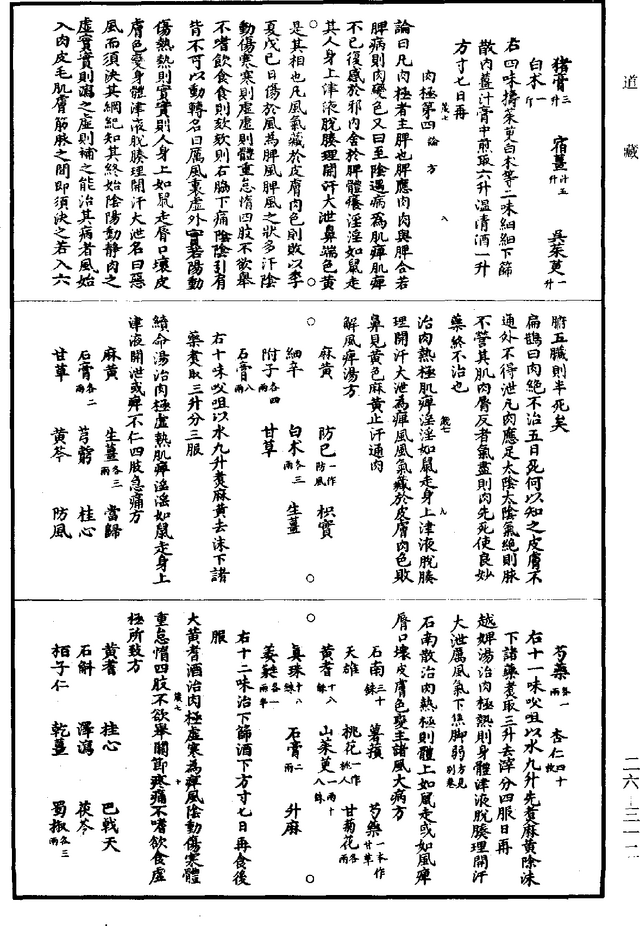 道藏
猪膏三升 宿薑汁五升 吳茱萸一升
白朮一斤
右四味擣茱萸白朮等二味細細下篩
散內薑汁膏中煎取六升溫清酒一升
方寸七日再
肉極第四論 方
論曰凡肉極者主脾也脾應肉肉與脾合若
脾病則肉變色又曰至陰遇病為肌痺肌痺
不已復感於邪內舍於脾體癢淫淫如鼠走
其人身上津液脫腠理開汗大泄鼻端色黃
是其相也凡風氣藏於皮膚肉色則敗以季
夏戊己日傷於風為脾風脾風之狀多汗陰
動傷寒寒則虛虛則體重怠惰四肢不欲舉
不嗜飲食食則欬欬則右脇下痛陰陰引肩
背不可以動轉名曰厲風裏虛外實若陽動
傷熱熱則實實則人身上如鼠走脣口壞皮
膚色變身體津液脫腠理開汗大泄名曰惡
風而須決其綱紀知其終始陰陽動靜肉之
虛實實則瀉之虛則補之能治其病者風始
入肉皮毛肌膚筋脉之間即須決之若入六
腑五臟則半死矣
扁鵲曰肉絕不治五日死何以知之皮膚不
通外不得泄凡肉應足太陰太陰氣絕則脉
不營其肌肉脣反者氣盡則肉先死使良妙
藥終不治也
治肉熱極肌痺淫淫如鼠走身上津液脫腠
理開汗大泄為痺風風氣藏於皮膚肉色敗
鼻見黃色麻黃止汗通肉
解風痺湯方
麻黃 防己一作防風 枳實
細辛 白朮各三兩 生薑
附子各四兩 甘草
石膏八兩
右十味㕮咀以水九升煑麻黃去沫下諸
藥煑取三升分三服
續命湯治肉極虛熱肌痺淫淫如鼠走身上
津液開泄或痺不仁四肢急痛方
麻黃 生薑各三兩 當歸
石膏各二兩 芎藭 桂心
甘草 黃芩 防風
芍藥各一兩 杏仁四十枚
右十一味㕮咀以水九升先煑麻黃除沫
下諸藥煑取三升去滓分四服日再
越婢湯治肉極熱則身體津液脫腠理開汗
大泄厲風氣下焦脚弱方見別卷
石南散治肉熱極則體上如鼠走或如風痺
脣口壞皮膚色變主諸風大病方
石南三十銖 薯蕷 芍藥一本作甘草
天雄 桃花一作桃人 甘菊花各一兩
黃耆十八銖 山茱萸一兩十八銖
真珠十八銖 石膏二兩 升麻
葳蕤各一兩半
右十二味治下篩酒下方寸七日再食後
服
大黃耆酒治肉極虛寒為痺風陰動傷寒體
重怠惰四肢不欲舉關節疼痛不嗜飲食虛
極所致方
黃耆 桂心 巴戟天
石斛 澤瀉 茯苓
栢子仁 乾薑 蜀椒各三兩
二六—三一二